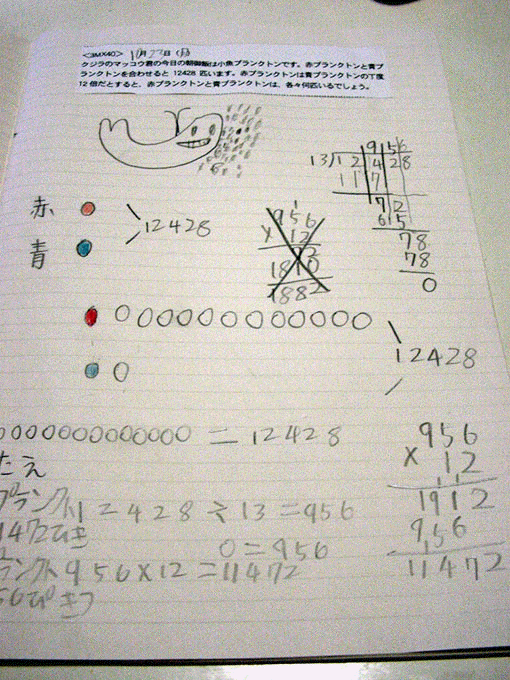 <3MX40> 10月27日(月)
クジラのマッコウ君の今日の朝御飯は小魚プランクトンです。赤プランクトンと青プ
ランクトンを合わせると 12428 匹います。赤プランクトンは青プランクトンの丁度
12 倍だとすると、赤プランクトンと青プランクトンは、各々何匹いるでしょう。
956
13)12428
117
72
65
78
78
0
赤
青
12428
956
× 12
1882
12428
= 12428
たえ
プランクト 12428÷13=956
11472ひき
0=956
ランクト 956×12=11472
56ぴきつ
956
× 12
1912
956
11472